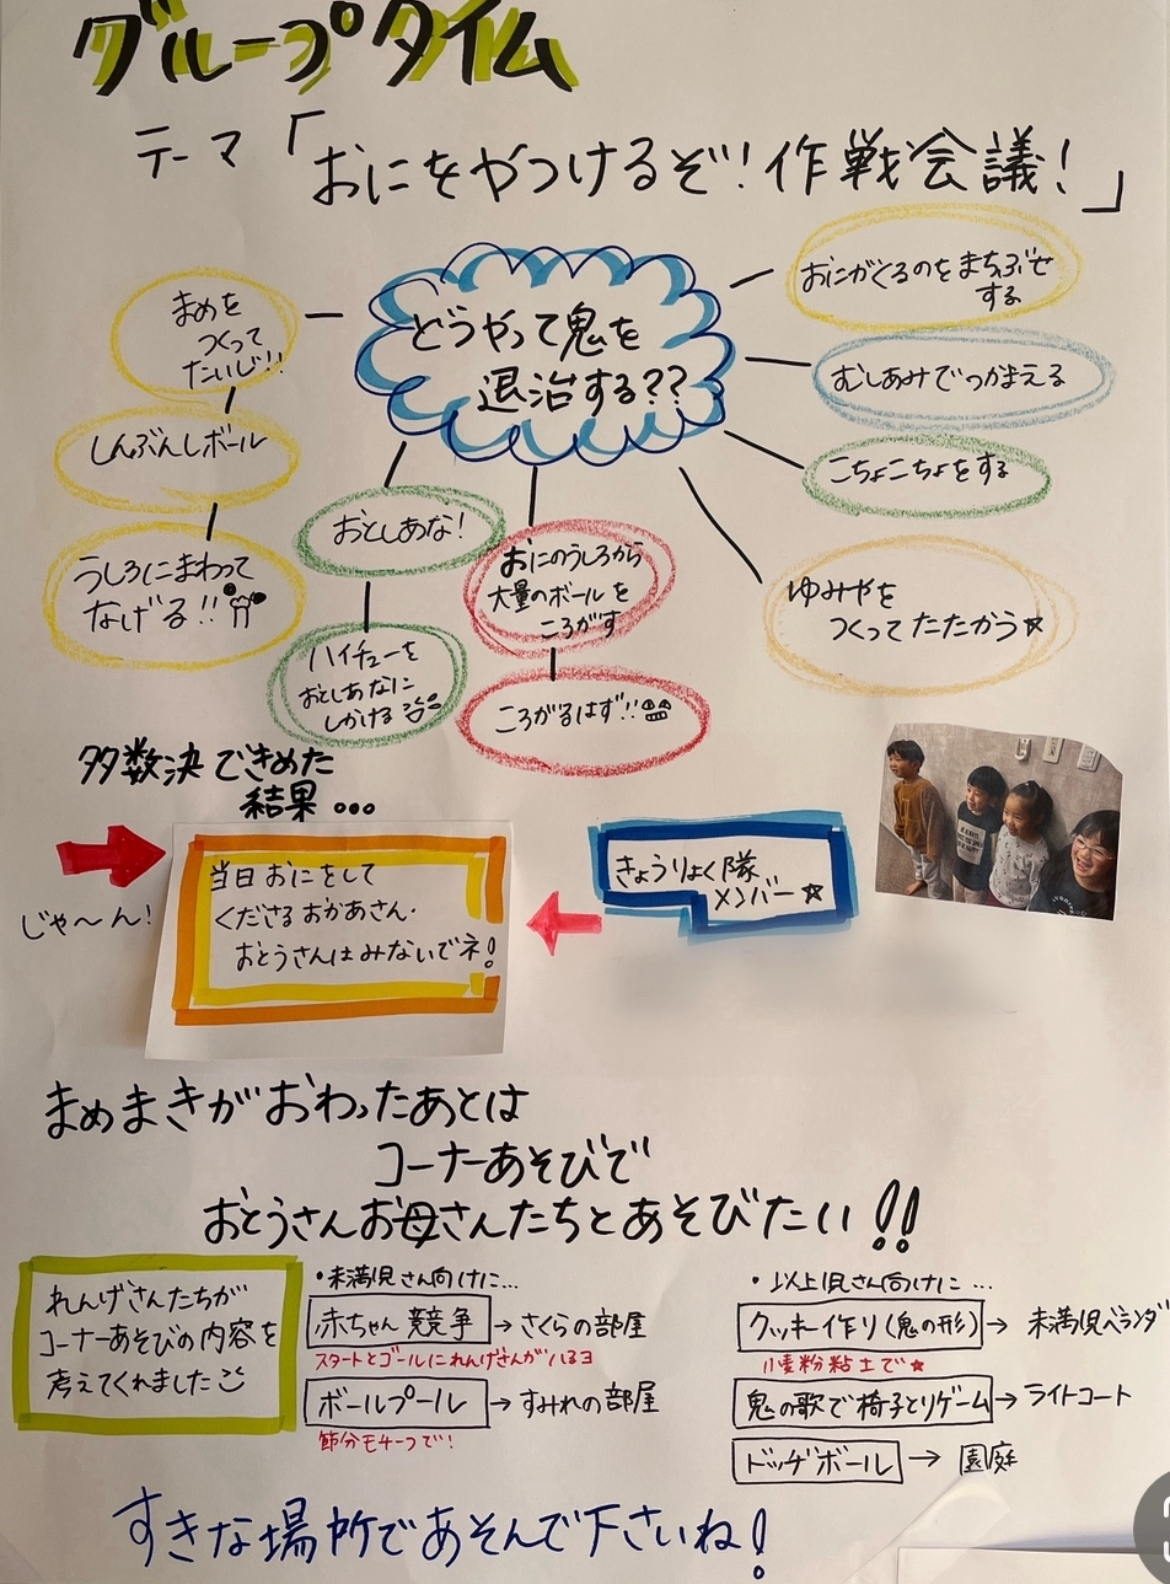 グループタイム
テーマ「おにをやつけるぞ!作戦会議!」
どうやって鬼を
退治する??
まめを
つくって
たいじ!!
しんぶんしボール
うしろにまわって
なげる!!
おとしあな!
ハイチューを
おとしあなに
しかける
おにのうしろから
大量のボールを
ころがす
ころがるはず!!
おにがくるのをまちぶせ
する
むしあみでつかまえる
こちょこちょをする
ゆみやを
つくってたたかう☆
多数決できめた
結果...
じゃ〜ん!
当日おにをして
くださるおかあさん・
おとうさんはみないでネ!
きょうりょく隊
メンバー☆
まめまきがおわったあとは
コーナーあそびで
おとうさんお母さんたちとあそびたい!!
れんげさんたちが
コーナーあそびの内容を
考えてくれました
・未満児さん向けに...
赤ちゃん競争→さくらの部屋
スタートとゴールにれんげさんがいるヨ
ボールプール→すみれの部屋
節分モチーフで!
・以上児さん向けに...
クッキー作り(鬼の形)→未満児ベランダ
小麦粉粘土で☆
鬼の歌で椅子とりゲーム→ライトコート
ドッヂボール→園庭
すきな場所であそんで下さいね!